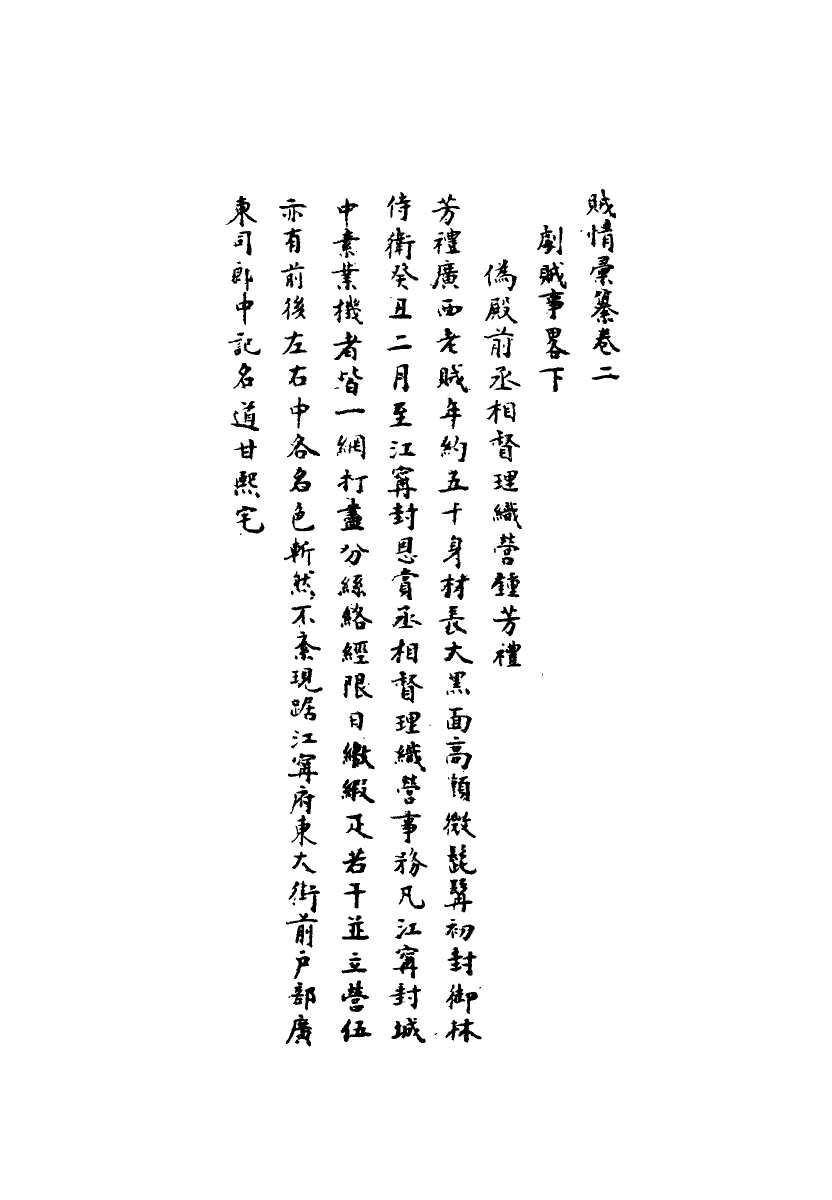 賊情彙纂卷二
劇賊事畧下
偽殿前丞相督理織營鍾芳禮
芳禮廣西老賊年約五十身材長大黑面高顴微髭鬚初封御林
侍衛癸丑二月至江寗封恩賞丞相督理織營事務凡江寗封城
中素業機者皆一網打盡分絲絡經限日繳緞疋若干並立營伍
亦有前後左右中各名色斬然不紊現踞江寗府東大街前戶部廣
東司郎中記名道甘熙宅